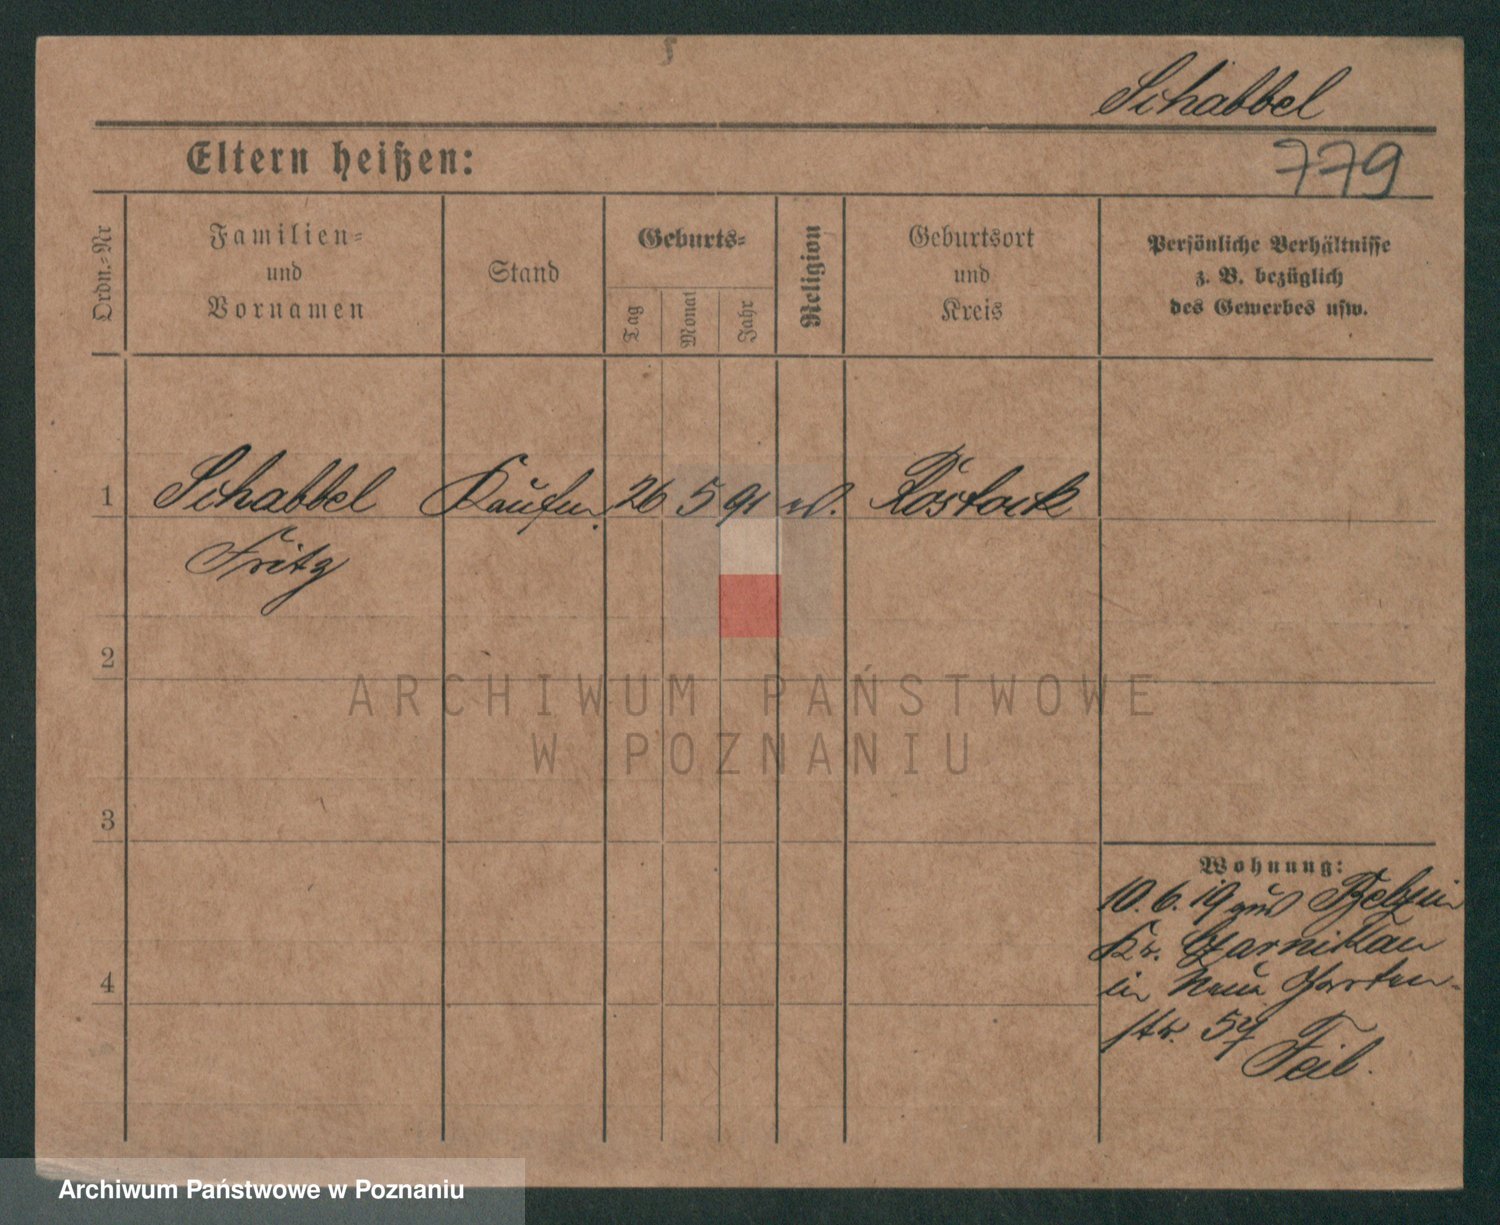 Schabbel
Eltern heißen:
779
Ordn.-Nr
Familien-
und
Vornamen
Stand
Geburts-
Tag
Monat
Jahr
Religion
Geburtsort
und
Kreis
Persönliche Verhältnisse
z. B. bezüglich
des Gewerbes usw.
1 Schabbel Kaufm. 26 5 91 ev. Rostock
Fritz
2
ARCHIWUM PAŃSTWOWE
W POZNANIU
3
Wohnung:
10. 6. 19 aus
Kr. Czarnikau
4
in Neue Garten-
str. 57
Feil.
Archiwum Państwowe w Poznaniu